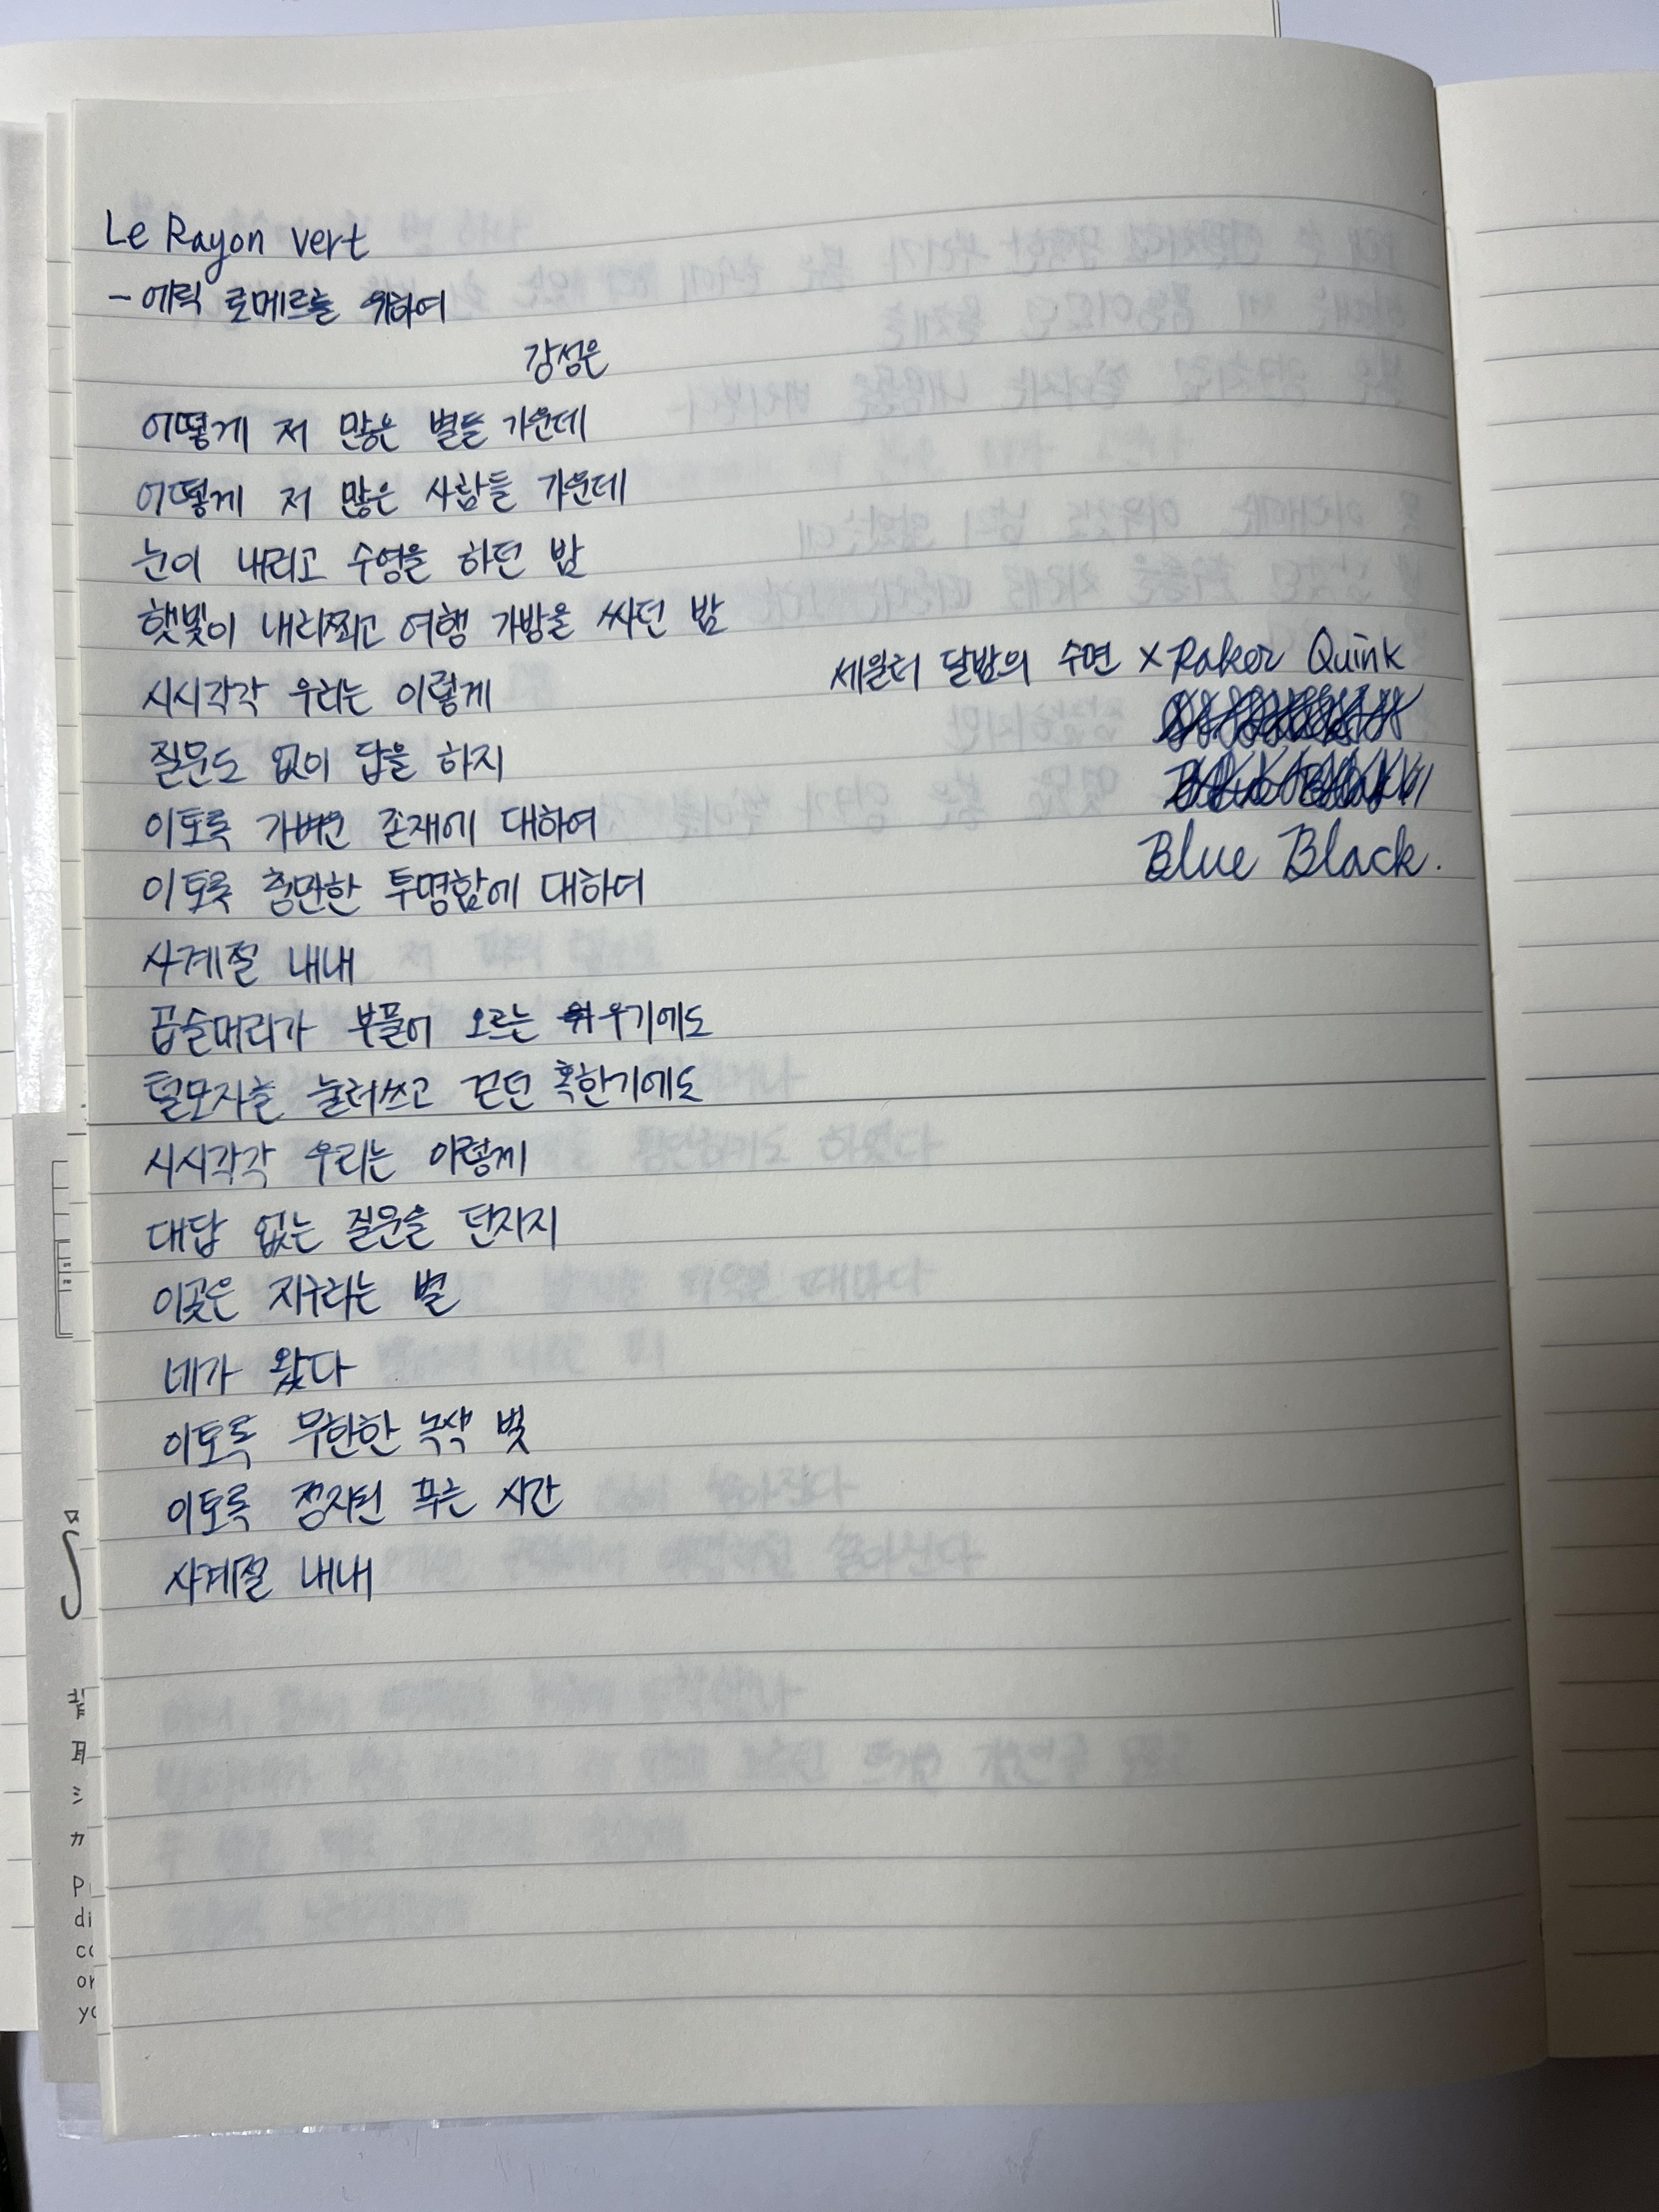 Le Rayon vert
- 에릭 로메르를 위하여
강성은
어떻게 저 많은 별들 가운데
어떻게 저 많은 사람들 가운데
눈이 내리고 수영을 하던 밤
햇빛이 내리쬐고 여행 가방을 싸던 밤
시시각각 우리는 이렇게
질문도 없이 답을 하지
이토록 가벼운 존재에 대하여
이토록 충만한 투명함에 대하여
사계절 내내
곱슬머리가 부풀어 오르는 우기에도
털모자를 눌러쓰고 걷던 혹한기에도
시시각각 우리는 이렇게
대답 없는 질문을 던지지
이곳은 지구라는 별
네가 왔다
이토록 무한한 녹색 빛
이토록 정지된 푸른 시간
사계절 내내
세일러 달밤의 수면 × Paker Quink
Blue Black.